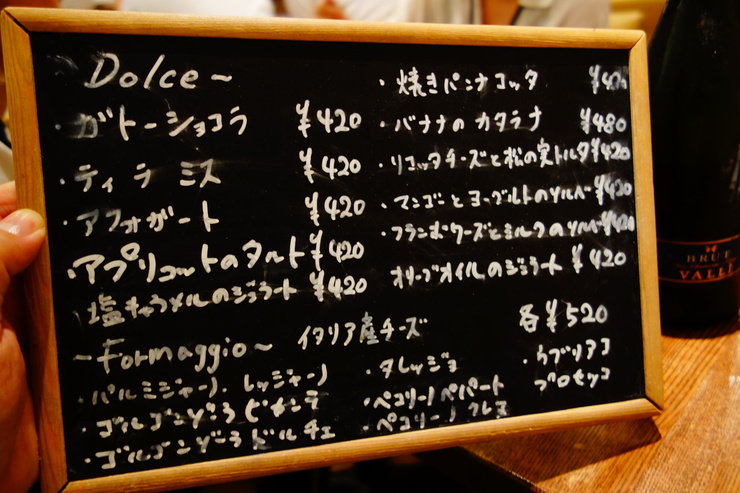 Dolce~
・ガトーショコラ ¥420
・ティラミス ¥420
・アフォガート ¥420
・アプリコットのタルト ¥420
塩キャラメルのジェラート ¥420
・焼きパンナコッタ
・バナナのカタラナ ¥480
・リコッタチーズと松の実トルタ ¥420
・マンゴーとヨーグルトのソルベ
・フランボワーズとミルクのソルベ ¥420
オリーブオイルのジェラート ¥420
~Formaggio~ イタリア産チーズ 各¥520
・パルミジャーノ レッジャーノ
・ゴルゴンゾーラ ピカンテ
・ゴルゴンゾーラ ドルチェ
・タレッジョ
・ペコリーノ ペパート
・ペコリーノ フレスコ
・ウブリアコ
プロセッコ
BRUT
VALL